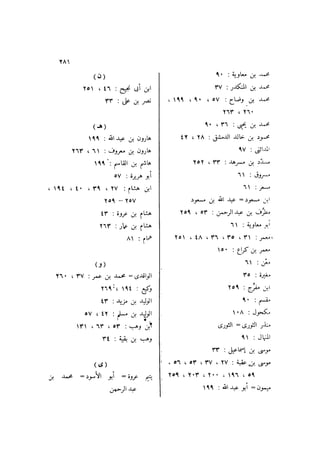 ٢٨١
محمد بن معاوية : ٩٠
محمد بن المنكدر : ٣٧
محمد بن وضاح : ٥٧ ، ٩٠ ، ١٩٩ ،
٢٦٠ ، ٢٦٣
محمد بن يحيى : ٣٦ ، ٩٠
محمود بن خالد الدمشقى : ٢٨ ، ٤٢
المدائنى : ٩٧
مسدّد بن مسرهد : ٣٣ ، ٢٥٢
مسروق : ٦١
مسعر : ٦١
ابن مسعود = عبد الله بن مسعود
مطرّف بن عبد الرحمن : ٥٣ ، ٢٥٩
أبو معاوية : ٦١
معمر : ٣١ ، ٣٥ ، ٣٦ ، ٤٨ ، ٢٥١
معمر بن كراع : ١٥٠
معْن : ٦١
مغيرة : ٣٥
ابن مفرّج : ٢٥٩
مقسم : ٩٠
مكحول : ١٠٨
منذر الثورى = الثورى
المنهال : ٩١
موسى بن إسماعيل : ٣٣
موسى بن عقبة : ٢٧ ، ٣٧ ، ٥٣ ، ٥٦ ،
٥٩ ، ١٩٦ ، ٢٠٠ ، ٢٠٣ ، ٢٥٩
ميمون = أبو عبد الله : ١٩٩
(ن)
ابن أبى نجيح : ٤٦ ، ٢٥١
نصر بن على : ٣٣
(هـ)
هارون بن عبد الله : ١٩٩
هارون بن معروف : ٦١ ، ٢٦٣
هاشم بن القاسم : ١٩٩
أبو هريرة : ٥٧
ابن هشام : ٢٧ ، ٣٩ ، ٤٠ ، ١٩٤ ،
٢٥٧ – ٢٥٩
هشام بن عروة : ٤٣
هشام بن عمار : ٢٦٣
همام : ٨٦
(و)
الواقدى = محمد بن عمر : ٣٧ ، ٢٦٠
وكيع : ١٩٤ ، ٢٦٩
الوليد بن مزيد : ٤٣
الوليد بن مسلم : ٤٢ ، ٥٧
ابن وهب : ٥٣ ، ٦٣ ، ١٣١
وهب بن بقية : ٣٤
(ى)
يتيم عروة = أبو الأسود = محمد بن
عبد الرحمن